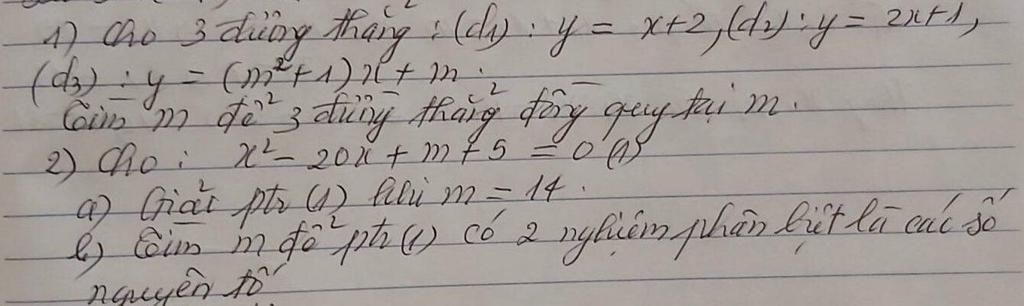 1) Cho 3 đường thẳng : (d1) : y = x+2, (d2) : y = 2x+1,
(d3) : y = (m²+1)x + m.
Tìm m để 3 đường thẳng đồng quy tại m.
2) Cho : x² - 20x + m + 5 = 0 (1)
a) Giải ptr (1) khi m = 14.
b) Tìm m để ptr (1) có 2 nghiệm phân biệt là các số
nguyên tố